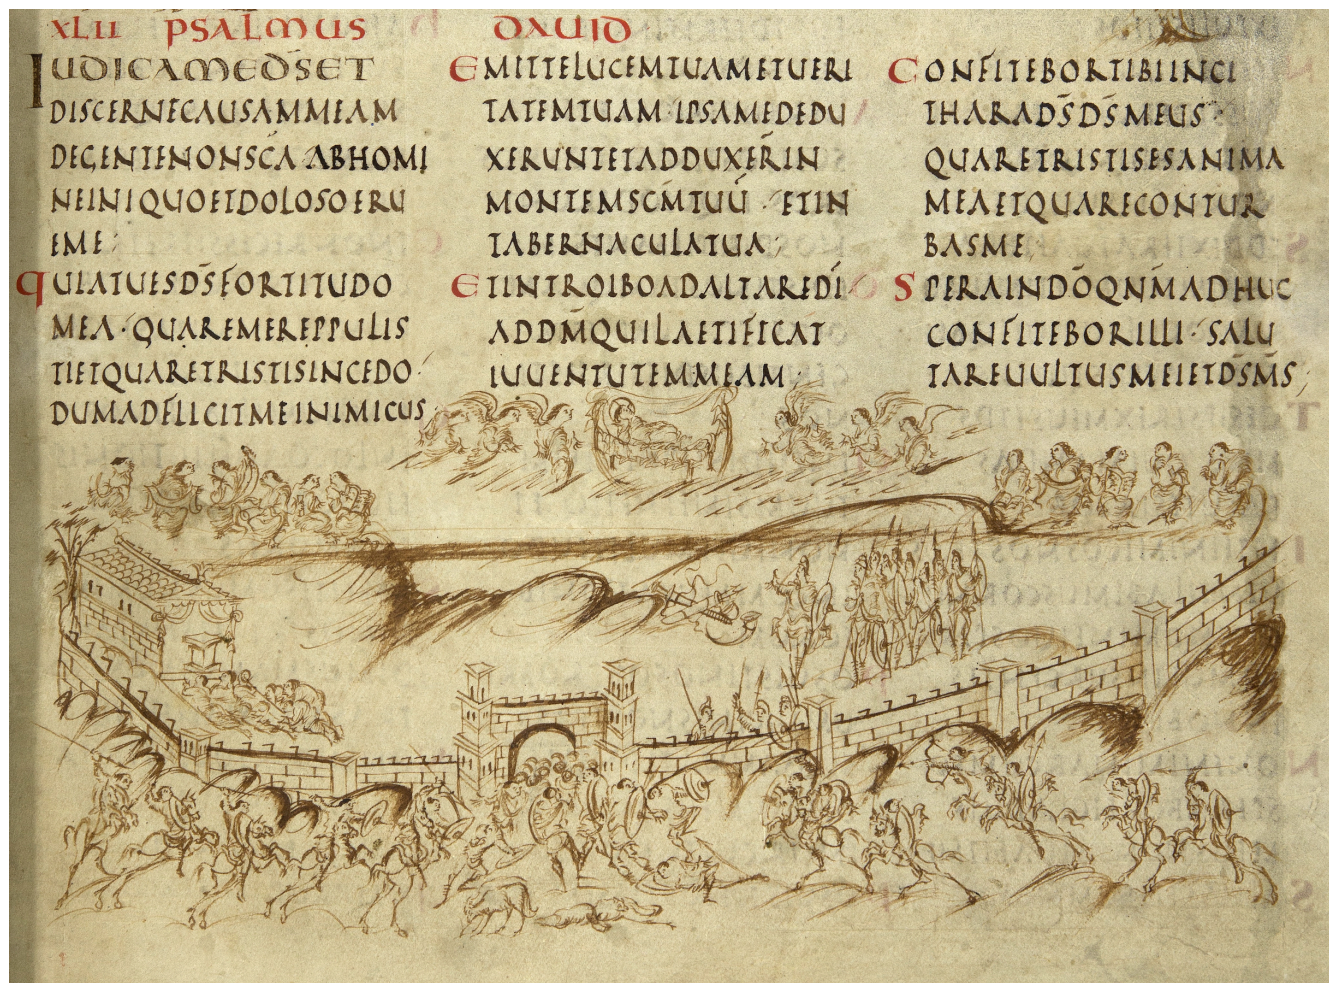 XLII PSALMUS DAUID
IUDICAMEDS̄ET
DISCERNECAUSAMMEAM
DEGENTENONSC̄A·ABHOMI
NEINIQUOETDOLOSOERU
EME:
QUIATUESDS̄FORTITUDO
MEA·QUAREMEREPPULIS
TIETQUARETRISTISINCEDO·
DUMADFLICITMEINIMICUS;
EMITTELUCEMTUAMETUERI
TATEMTUAM·IPSAMEDEDU
XERUNTETADDUXER̄IN
MONTEMSCM̄TUŪ·ETIN
TABERNACULATUA;
ETINTROIBOADALTAREDĪ
ADDM̄QUILAETIFICAT
IUUENTUTEMMEAM;
CONFITEBORTIBIINCI
THARADS̄DS̄MEUS·
QUARETRISTISESANIMA
MEAETQUARECONTUR
BASME
SPERAINDŌQNM̄ADHUC
CONFITEBORILLI·SALU
TAREUULTUSMEIETDS̄MS̄;